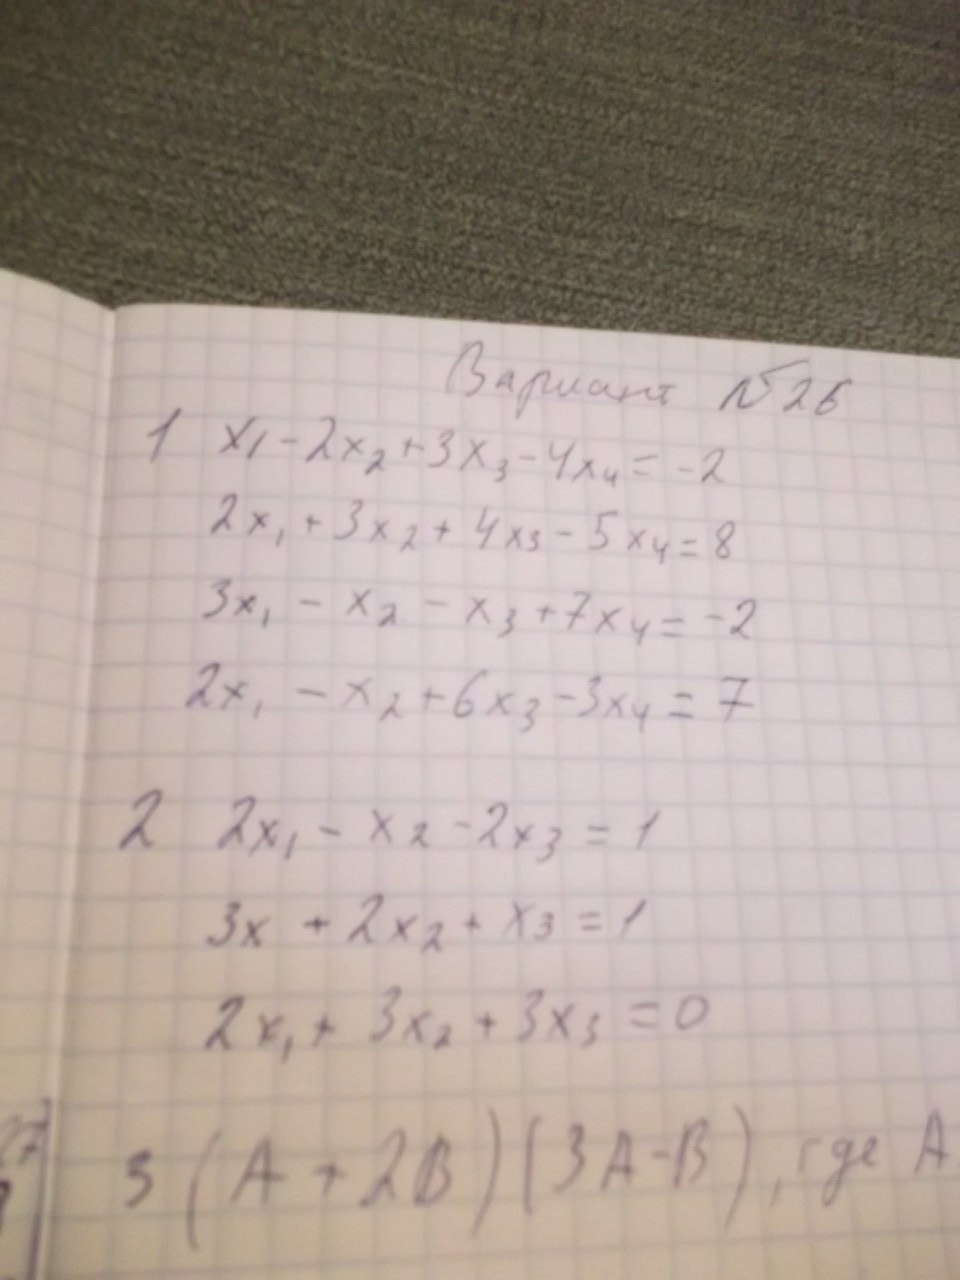 Вариант №26
1 x₁ - 2x₂ + 3x₃ - 4x₄ = -2
2x₁ + 3x₂ + 4x₃ - 5x₄ = 8
3x₁ - x₂ - x₃ + 7x₄ = -2
2x₁ - x₂ + 6x₃ - 3x₄ = 7
2 2x₁ - x₂ - 2x₃ = 1
3x + 2x₂ + x₃ = 1
2x₁ + 3x₂ + 3x₃ = 0
3 (A + 2B)(3A - B), где A